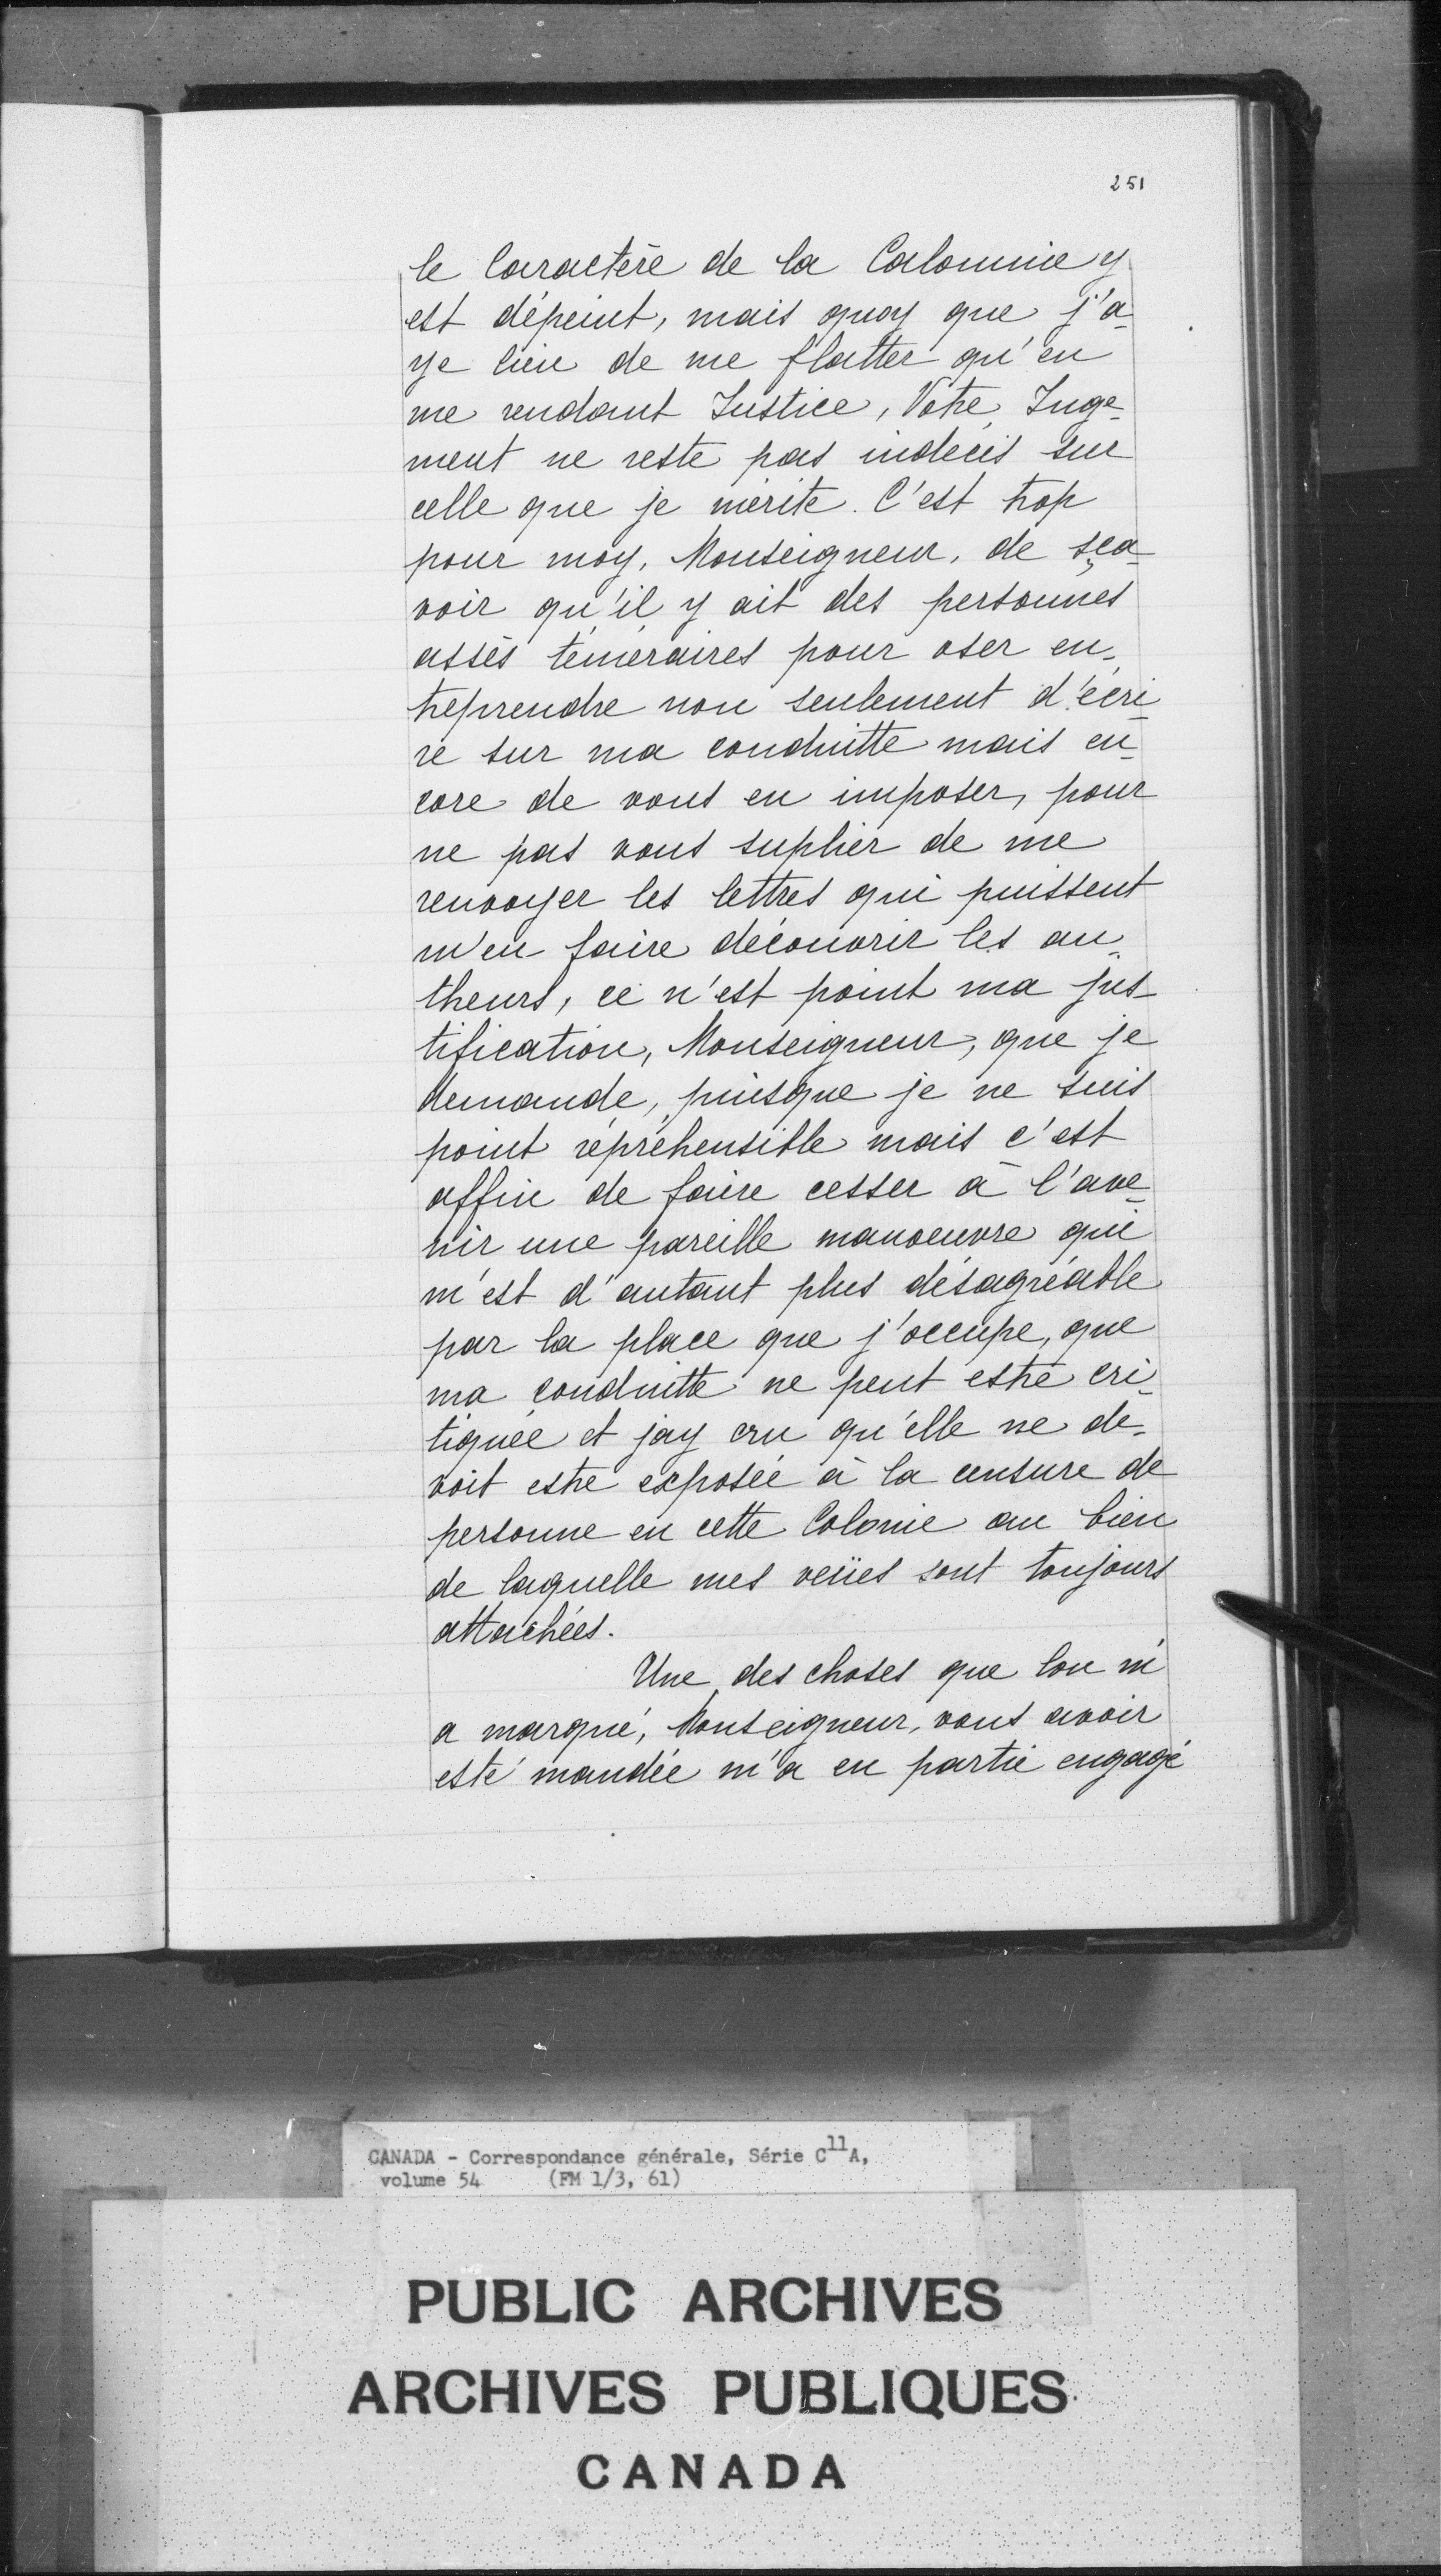 251
le Caractère de la Calomnie y
est dépeint, mais quoy que j'a-
ye lieu de me flatter qu'en
me rendant Justice, Votre Juge-
ment ne reste pas indécis sur
celle que je mérite. C'est trop
pour moy, Monseigneur, de sça-
voir qu'il y ait des personnes
assés téméraires pour oser en-
treprendre non seulement d'écri-
re sur ma conduitte mais en-
core de vous en imposer, pour
ne pas vous suplier de me
renvoyer les lettres qui puissent
m'en faire découvrir les au-
theurs, ce n'est point ma jus-
tification, Monseigneur, que je
demande, puisque je ne suis
point répréhensible mais c'est
affin de faire cesser à l'ave-
nir une pareille manoeuvre qui
m'est d'autant plus désagréable
par la place que j'occupe, que
ma conduitte ne peut estre cri-
tiquée et jay cru qu'elle ne de-
voit estre exposée à la censure de
personne en cette Colonie au bien
de laquelle mes veües sont toujours
attachées.
Une des choses que lon m'
a marqué, Monseigneur, vous avoir
esté mandée m'a en partie engagé
CANADA - Correspondance générale, Série C11A,
volume 54 (FM 1/3, 61)
PUBLIC ARCHIVES
ARCHIVES PUBLIQUES
CANADA